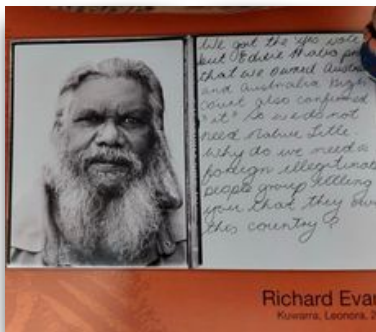 We got the "yes vote
but Eddie Mabo
that we owned Austra
and Australia High
court also confirmed
"it" So we do not
need Native Title
Why do we need a
foreign illegitimate
people group telling
you that they own
this country?
Richard Eva
Kuwarra, Leonora, 2